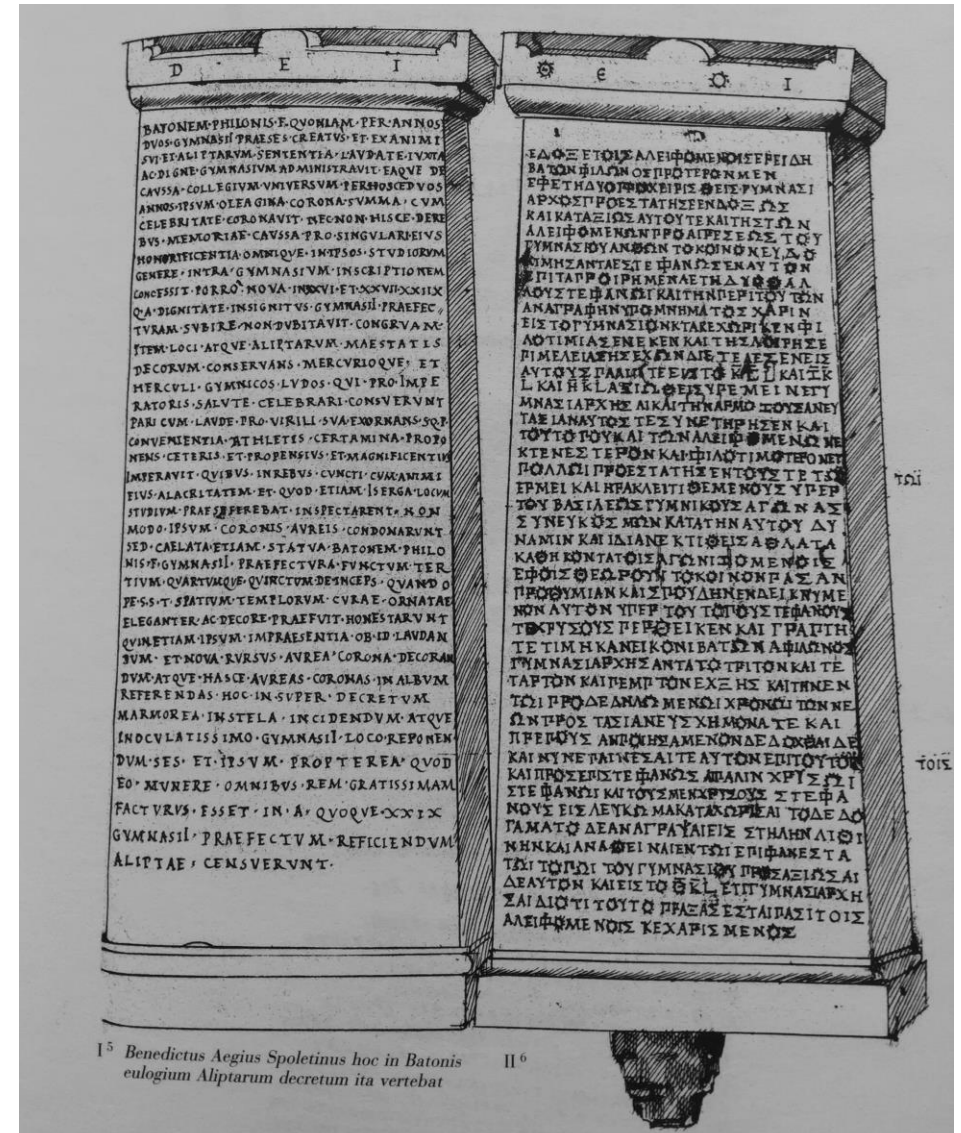 D E I
BATONEM·PHILONIS·F·QVONIAM·PER·ANNOS
DVOS·GYMNASII PRAESES·CREATVS·ET·EX ANIMI
SVI·ET·ALIPTARVM·SENTENTIA·LAVDATE·IVXTA
AC·DIGNE·GYMNASIVM ADMINISTRAVIT·EAQVE DE
CAVSSA·COLLEGIVM·VNIVERSVM·PER HOSCE DVOS
ANNOS·IPSVM·OLEAGINA·CORONA·SVMMA·CVM
CELEBRITATE·CORONAVIT·NEC·NON·HISCE·DERE
BVS·MEMORIAE·CAVSSA·PRO·SINGVLARI·EIVS
HONORIFICENTIA·OMNIQVE·IN·IPSOS·STVDIORVM
GENERE·INTRA·GYMNASIVM·INSCRIPTIONEM
CONCESSIT·PORRO·NOVA·
Q·A·DIGNITATE·INSIGNITVS·GYMNASII·PRAEFEC
TVRAM·SVBIRE·NON·DVBITAVIT·CONGRVAM·
ITEM·LOCI·ATQVE·ALIPTARVM·MAESTATIS
DECORVM·CONSERVANS·MERCVRIOQVE·ET
HERCVLI·GYMNICOS·LVDOS·QVI·PRO·IMPE
RATORIS·SALVTE·CELEBRARI·CONSVERVNT
PARI CVM·LAVDE·PRO·VIRILI·SVA·EXORNANS·SQ·P·
CONVENIENTIA·ATHLETIS·CERTAMINA·PROPO
NENS·CETERIS·ET·PROPENSIVS·ET·MAGNIFICENTIVS
IMPERAVIT·QVIBVS·IN REBVS·CVNCTI·CVM·ANIMI
EIVS·ALACRITATEM·ET·QVOD·ETIAM·ISERGA·LOCVM
STVDIVM·PRAESEFEREBAT·INSPECTARENT·NON
MODO·IPSVM·CORONIS·AVREIS·CONDONARVNT
SED·CAELATA·ETIAM·STATVA·BATONEM·PHILO
NIS·F·GYMNASII·PRAEFECTVRA·FVNCTVM·TER
TIVM·QVARTVMQVE·QVINCTVM·DEINCEPS·QVANDO
PE·S·S·T·SPATIVM·TEMPLORVM·CVRAE·ORNATAE
ELEGANTER·AC·DECORE·PRAEFVIT·HONESTARVNT
QVINETIAM·IPSVM·IMPRAESENTIA·OB·ID·LAVDAN
DVM·ET·NOVA·RVRSVS·AVREA·CORONA·DECORAN
DVM·ATQVE·HASCE·AVREAS·CORONAS·IN ALBVM
REFERENDAS·HOC·IN·SVPER·DECRETVM
MARMOREA·IN STELA·INCIDENDVM·ATQVE
INOCVLATISSIMO·GYMNASII·LOCO·REPONEN
DVM·SES·ET·IPSVM·PROPTEREA·QVOD
EO·MVNERE·OMNIBVS·REM·GRATISSIMAM
FACTVRVS·ESSET·IN·A·QVOQVE·XXIX
GYMNASII·PRAEFECTVM·REFICIENDVM
ALIPTAE·CENSVERVNT·
Θ Ε Ο Ι
ΕΔΟΞΕΤΟΙΣΑΛΕΙΦΟΜΕΝΟΙΣΕΠΕΙΔΗ
ΒΑΤΩΝΦΙΛΩΝΟΣΠΡΟΤΕΡΟΝΜΕΝ
ΕΦΕΤΗΔΥΟΠΡΟΧΕΙΡΙΣΘΕΙΣΓΥΜΝΑΣΙ
ΑΡΧΟΣΠΡΟΕΣΤΑΤΗΣΕΕΝΔΟΞΩΣ
ΚΑΙΚΑΤΑΞΙΩΣΑΥΤΟΥΤΕΚΑΙΤΗΣΤΩΝ
ΑΛΕΙΦΟΜΕΝΩΝΠΡΟΑΙΡΕΣΕΩΣΤΟΥ
ΓΥΜΝΑΣΙΟΥΑΝΘΩΝΤΟΚΟΙΝΟΝΕΥΔΟ
ΚΙΜΗΣΑΝΤΑΕΣΤΕΦΑΝΩΣΕΝΑΥΤΟΝ
ΕΠΙΤΑΠΡΟΙΡΗΜΕΝΑΕΤΗΔΥΟΘΑΛ
ΛΟΥΣΤΕΦΑΝΩΙΚΑΙΤΗΝΠΕΡΙΤΟΥΤΩΝ
ΑΝΑΓΡΑΦΗΝΥΠΟΜΝΗΜΑΤΟΣΧΑΡΙΝ
ΠΟΛΛΩΙΠΡΟΕΣΤΑΤΗΣΕΝΤΟΥΣΤΕΤΩ
ΕΡΜΕΙΚΑΙΗΡΑΚΛΕΙΤΙΘΕΜΕΝΟΥΣΥΠΕΡ
ΤΟΥΒΑΣΙΛΕΩΣΓΥΜΝΙΚΟΥΣΑΓΩΝΑΣ
ΣΥΝΕΥΚΟΣΜΩΝΚΑΤΑΤΗΝΑΥΤΟΥΔΥ
ΝΑΜΙΝΚΑΙΙΔΙΑΝΕΚΤΙΘΕΙΣΑΘΛΑΤΑ
ΚΑΘΗΚΟΝΤΑΤΟΙΣΑΓΩΝΙΖΟΜΕΝΟΙΣ
ΕΦΟΙΣΘΕΩΡΟΥΝΤΟΚΟΙΝΟΝΠΑΣΑΝ
ΠΡΟΘΥΜΙΑΝΚΑΙΣΠΟΥΔΗΝΕΝΔΕΙΚΝΥΜΕ
ΝΟΝΑΥΤΟΝΥΠΕΡΤΟΥΤΟΠΟΥΣΤΕΦΑΝΟΥΣ
ΤΕΤΙΜΗΚΑΝΕΙΚΟΝΙΒΑΤΩΝΑΦΙΛΩΝΟΣ
ΓΥΜΝΑΣΙΑΡΧΗΣΑΝΤΑΤΟΤΡΙΤΟΝΚΑΙΤΕ
ΤΑΡΤΟΝΚΑΙΠΕΜΠΤΟΝΕΧΞΗΣΚΑΙΤΗΝΕΝ
ΤΩΙΠΡΟΔΕΔΗΛΩΜΕΝΩΙΧΡΟΝΩΙΤΩΝΝΕ
ΩΝΠΡΟΣΤΑΣΙΑΝΕΥΣΧΗΜΟΝΑΤΕΚΑΙ
ΚΑΙΝΥΝΕΠΑΙΝΕΣΑΙΤΕΑΥΤΟΝΕΠΙΤΟΥΤΟΙΣ
ΚΑΙΠΡΟΣΕΠΙΣΤΕΦΑΝΩΣΑΙΠΑΛΙΝΧΡΥΣΩΙ
ΣΤΕΦΑΝΩΙΚΑΙΤΟΥΣΜΕΝΧΡΥΣΟΥΣΣΤΕΦΑ
ΝΟΥΣΕΙΣΛΕΥΚΩΜΑΚΑΤΑΧΩΡΙΣΑΙΤΟΔΕΔΟ
ΓΑΜΑΤΟΔΕΑΝΑΓΡΑΨΑΙΕΙΣΣΤΗΛΗΝΛΙΘΙ
ΝΗΝΚΑΙΑΝΑΘΕΙΝΑΙΕΝΤΩΙΕΠΙΦΑΝΕΣΤΑ
ΤΩΙΤΟΠΩΙΤΟΥΓΥΜΝΑΣΙΟΥΠΡΟΣΑΞΙΩΣΑΙ
ΣΑΙΔΙΟΤΙΤΟΥΤΟΠΡΑΞΑΣΕΣΤΑΙΠΑΣΙΤΟΙΣ
ΑΛΕΙΦΟΜΕΝΟΙΣΚΕΧΑΡΙΣΜΕΝΟΣ
τωι
τοις
I⁵ Benedictus Aegius Spoletinus hoc in Batonis
eulogium Aliptarum decretum ita vertebat
II⁶